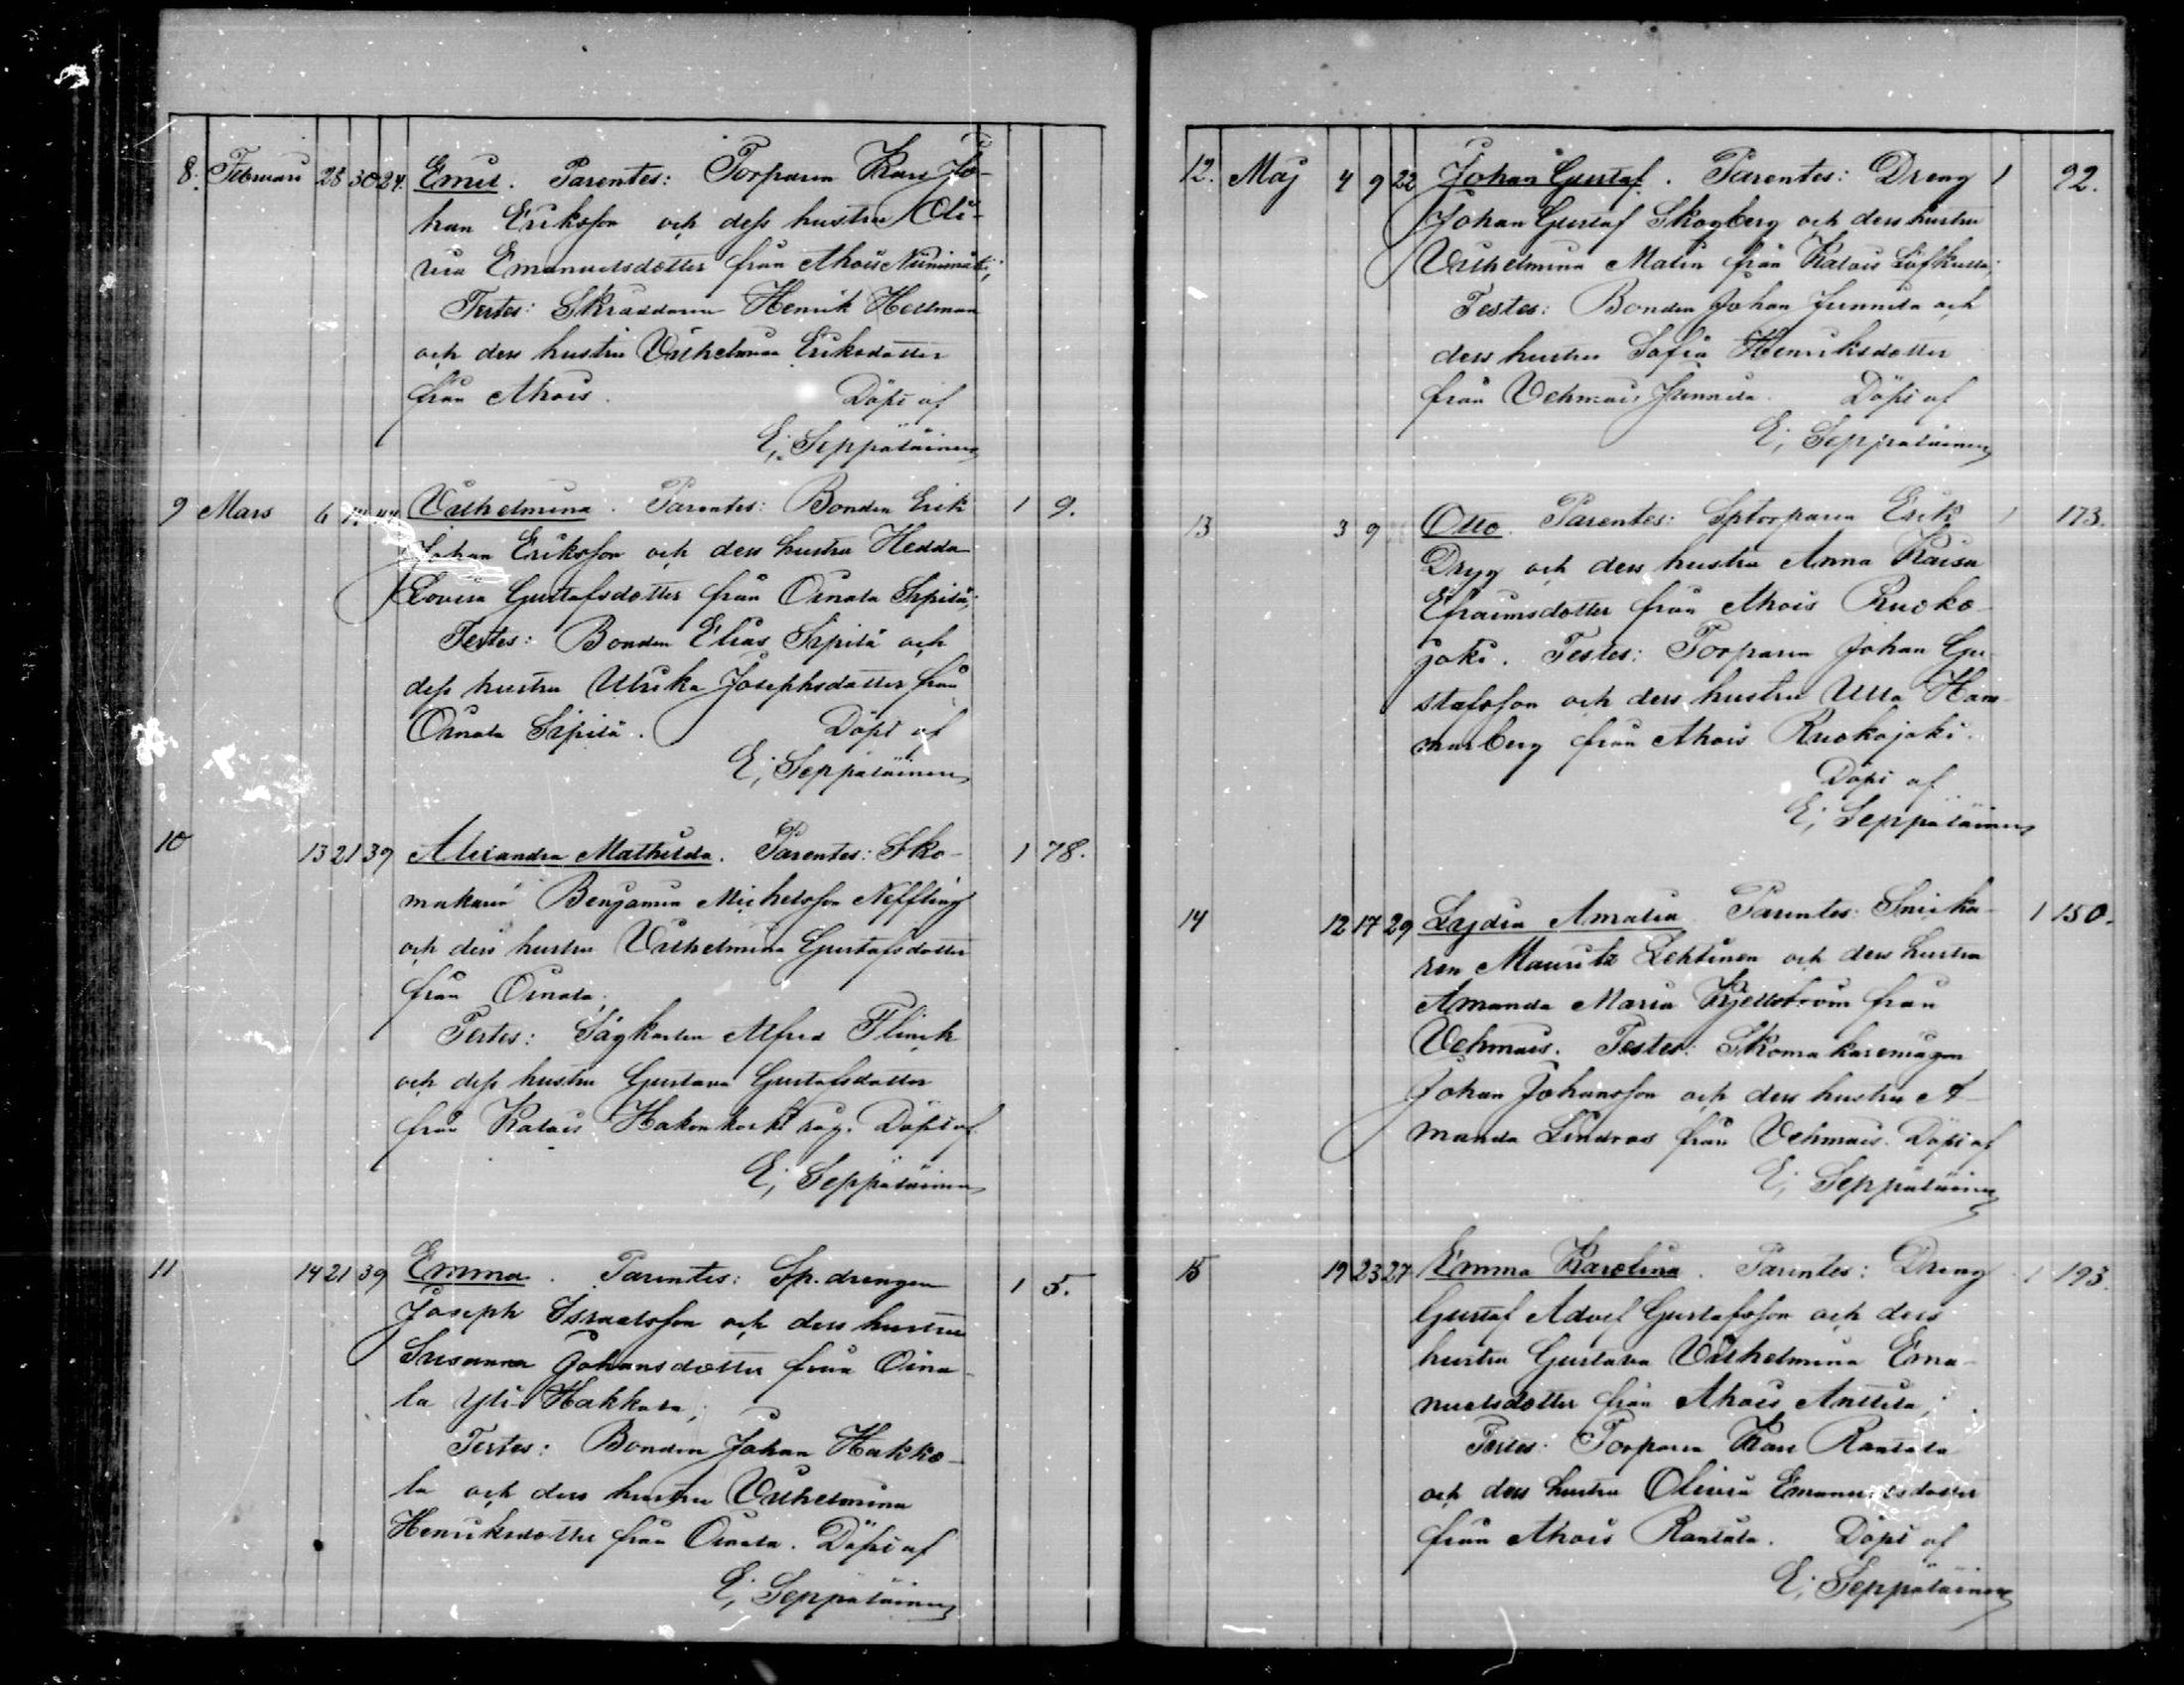 8. Februari 28 30 24. Emil. Parentes: Torparen Karl Jo-
han Eriksson och dess hustru Oli-
via Emanuelsdotter från Ahois Niinimäki;
Testes: Skräddaren Henrik Hellman
och dess hustru Vilhelmina Eriksdotter
från Ahois. Döpt af
E; Seppäläinen
9 Mars 6 14 44 Vilhelmina. Parentes: Bonden Erik 1 9.
Johan Eriksson och dess hustru Hedda
Lovisa Gustafsdotter från Oinala Sipilä;
Testes: Bonden Elias Sipilä och
dess hustru Ulrika Josephsdotter från
Oinala Sipilä. Döpt af
E; Seppäläinen
10 13 21 39 Alexandra Mathilda. Parentes: Sko- 1 78.
makaren Benjamin Michelsson Neffling
och dess hustru Vilhelmina Gustafsdotter
från Oinala;
Testes: Sågkarlen Alfred Flinck
och dess hustru Gustava Gustafsdotter
från Kalais Hakonkoski såg. Döpt af
E; Seppäläinen
11 14 21 39 Emma. Parentes: Sp. drengen 1 5.
Joseph Israelsson och dess hustru
Susanna Johansdotter från Oina-
la Yli-Hakkala;
Testes: Bonden Johan Hakka-
la och dess hustru Vilhelmina
Henriksdotter från Oinala. Döpt af
E; Seppäläinen
12. Maj 4 9 22 Johan Gustaf. Parentes: Dreng 1 92.
Johan Gustaf Skogberg och dess hustru
Vilhelmina Malin från Kalais Löfkulla;
Testes: Bonden Johan Junnila och
dess hustru Sofia Henriksdotter
från Vehmais Junnila. Döpt af
E; Seppäläinen
13 3 9 Otto. Parentes: Sptorparen Erik 1 173.
Dryg och dess hustru Anna Kaisa
Efraimsdotter från Ahois Ruoko-
joki. Testes: Torparen Johan Gu-
stafsson och dess hustru Ulla Ham-
marberg från Ahois Ruokojoki.
Döpt af
E; Seppäläinen
14 12 17 29 Lydia Amalia. Parentes: Snicka- 1 150.
ren Mauritz Lehtinen och dess hustru
Amanda Maria Kjellström från
Vehmais. Testes: Skomakaremågen
Johan Johansson och dess hustru A-
manda Lindroos från Vehmais. Döpt af
E; Seppäläinen
15 19 23 27 Emma Karolina. Parentes: Dreng 1 193.
Gustaf Adolf Gustafsson och dess
hustru Gustava Vilhelmina Ema-
nuelsdotter från Ahois Anttila;
Testes: Torparen Karl Rantala
och dess hustru Olivia Emanuelsdotter
från Ahois Rantala. Döpt af
E; Seppäläinen